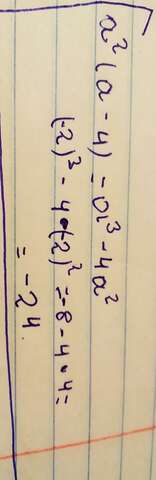 a²(a - 4) - a³ - 4a²
(-2)³ - 4•(-2)² = -8 - 4•4 =
= -24